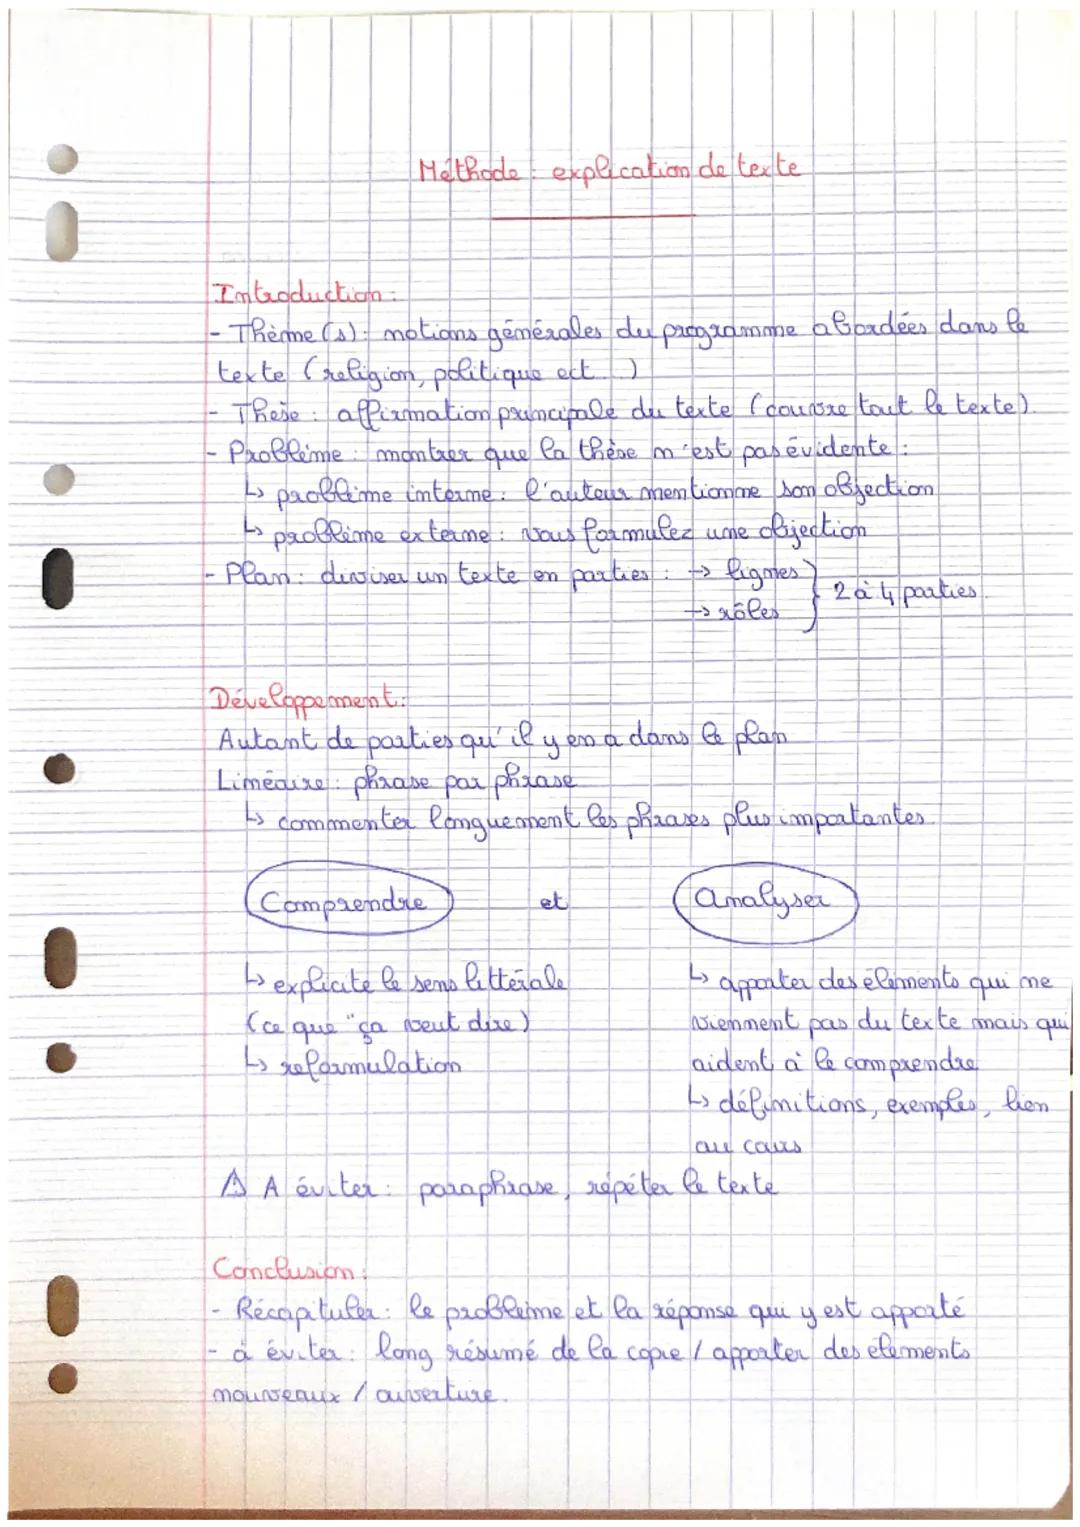 Méthode : explication de texte
Introduction :
- Thème(s) : notions générales du programme abordées dans le
texte (religion, politique ect...)
- Thèse : affirmation principale du texte (couvre tout le texte)
- Problème : montrer que la thèse n'est pas évidente :
↳ problème interne : l'auteur mentionne son objection
↳ problème externe : vous formulez une objection
- Plan : diviser un texte en parties : → lignes
→ rôles } 2 à 4 parties
Développement :
Autant de parties qu'il y en a dans le plan
Linéaire : phrase par phrase
↳ commenter longuement les phrases plus importantes
Comprendre et analyser
↳ explicite le sens littérale
(ce que "ça veut dire)
↳ reformulation
↳ apporter des éléments qui ne
viennent pas du texte mais qui
aident à le comprendre
↳ définitions, exemples, lien
au cours
⚠ A éviter : paraphrase, répéter le texte
Conclusion :
- Récapituler : le problème et la réponse qui y est apporté
- à éviter : long résumé de la copie / apporter des élements
nouveaux / ouverture.